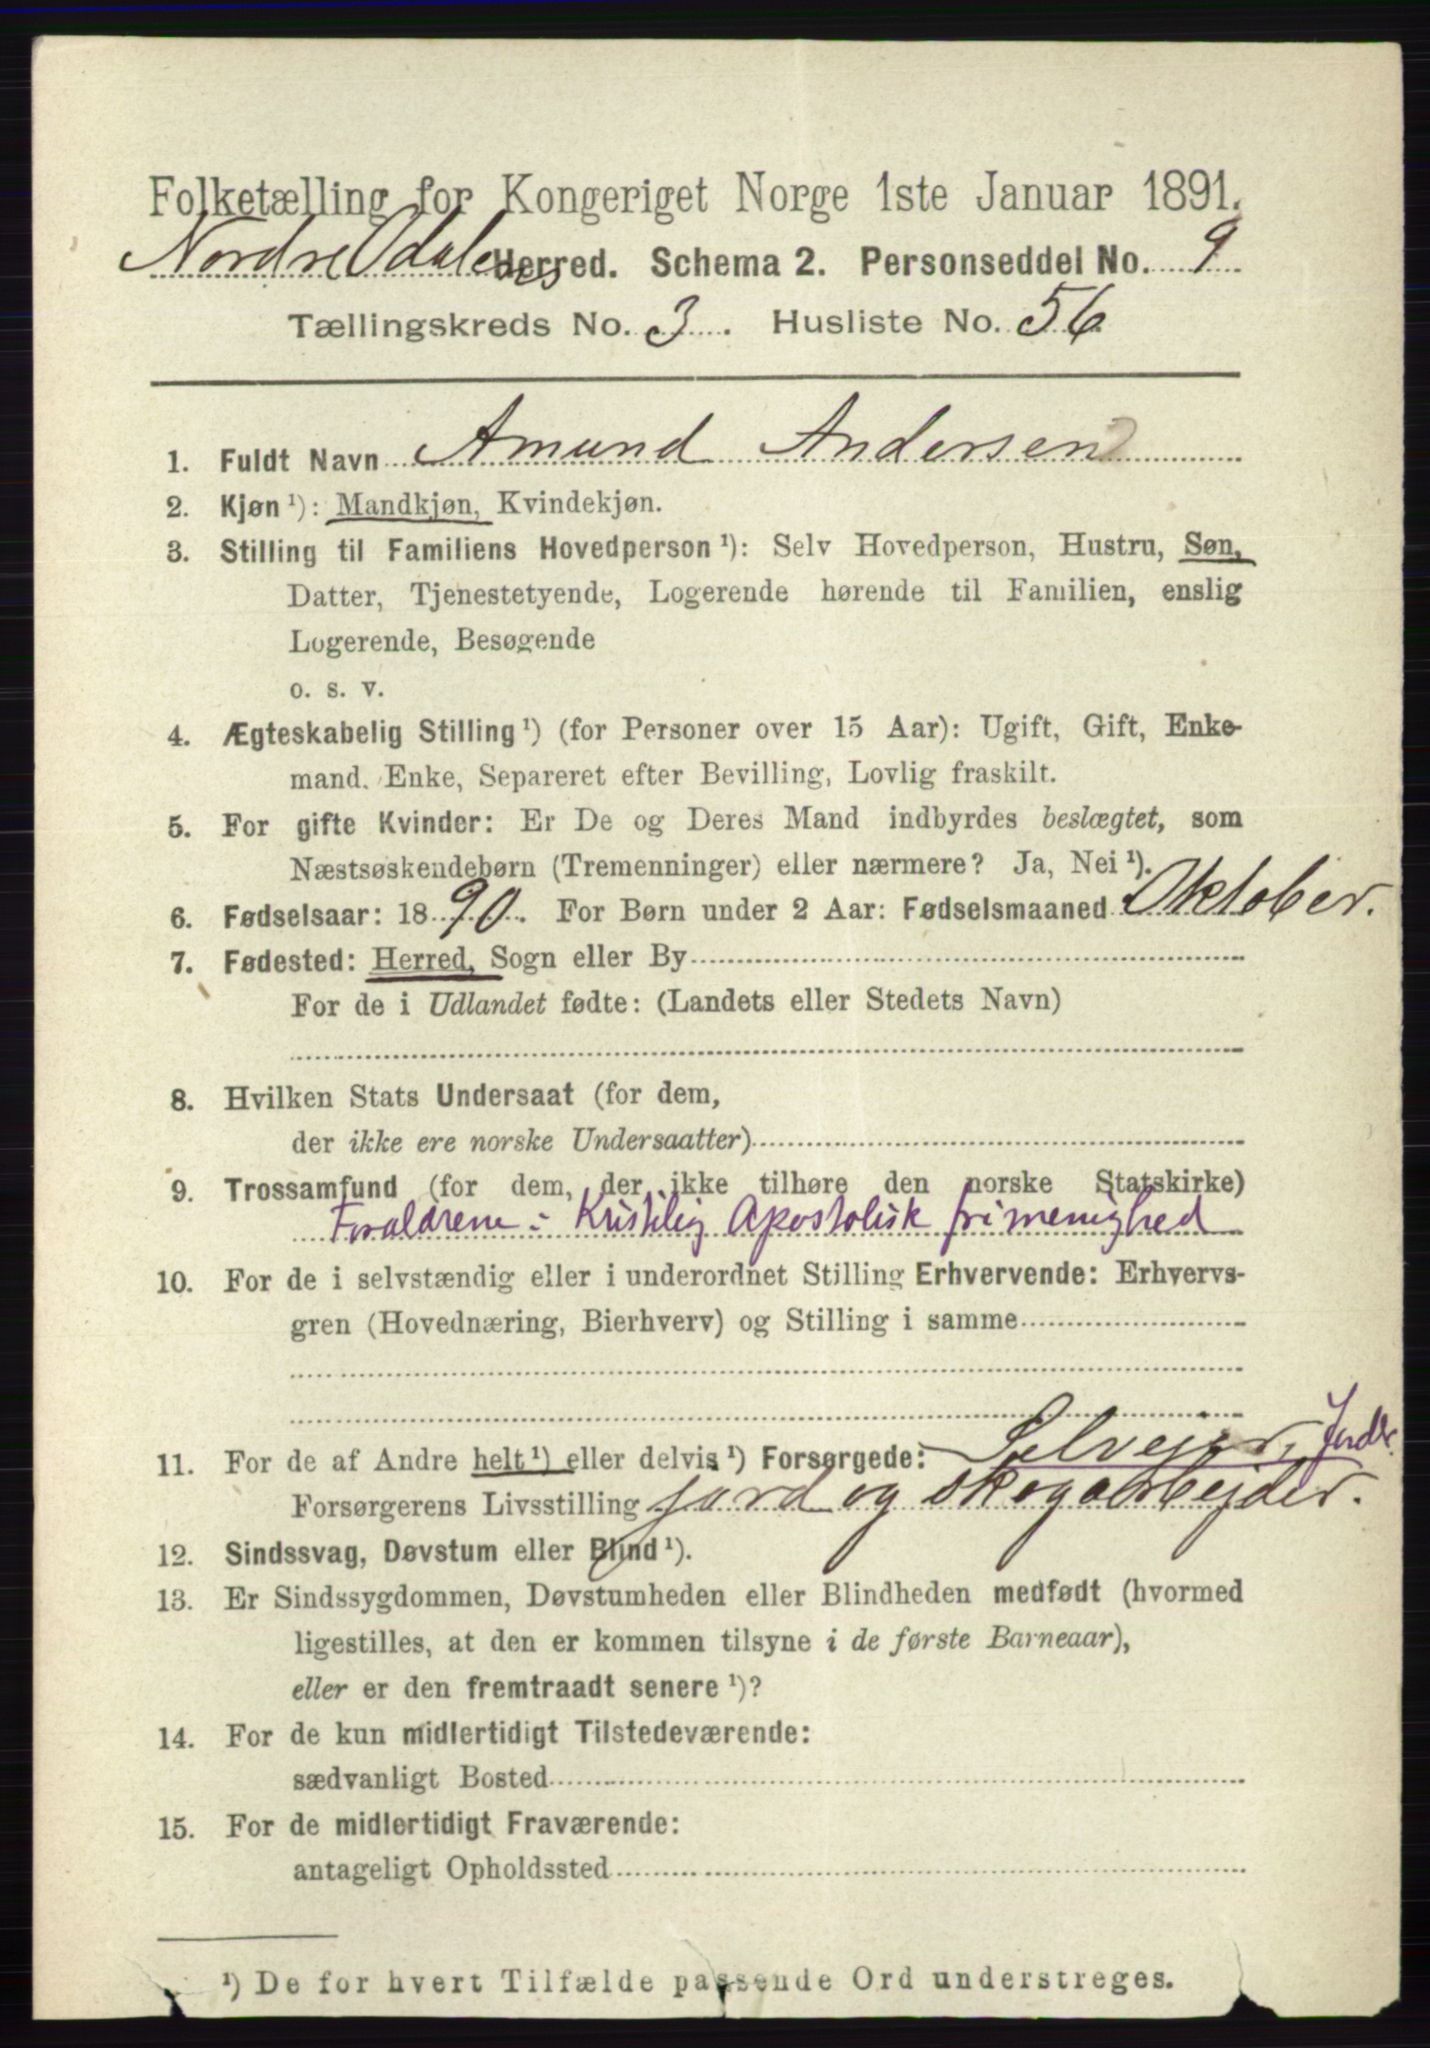 Folketælling for Kongeriget Norge 1ste Januar 1891.
Nordre Odalens Herred. Schema 2. Personseddel No. 9
Tællingskreds No. 3. Husliste No. 56
1. Fuldt Navn Amund Andersen
2. Kjøn ¹): Mandkjøn, Kvindekjøn.
3. Stilling til Familiens Hovedperson ¹): Selv Hovedperson, Hustru, Søn,
Datter, Tjenestetyende, Logerende hørende til Familien, enslig
Logerende, Besøgende
o. s. v.
4. Ægteskabelig Stilling ¹) (for Personer over 15 Aar): Ugift, Gift, Enke-
mand, Enke, Separeret efter Bevilling, Lovlig fraskilt.
5. For gifte Kvinder: Er De og Deres Mand indbyrdes beslægtet, som
Næstsøskendebørn (Tremenninger) eller nærmere? Ja, Nei ¹).
6. Fødselsaar: 1890. For Børn under 2 Aar: Fødselsmaaned Oktober.
7. Fødested: Herred, Sogn eller By
For de i Udlandet fødte: (Landets eller Stedets Navn)
8. Hvilken Stats Undersaat (for dem,
der ikke ere norske Undersaatter)
9. Trossamfund (for dem, der ikke tilhøre den norske Statskirke)
Forældrene: Kristilig Apostolisk frimenighed
10. For de i selvstændig eller i underordnet Stilling Erhvervende: Erhvervs-
gren (Hovednæring, Bierhverv) og Stilling i samme
11. For de af Andre helt ¹) eller delvis ¹) Forsørgede: Selvejer, Jordbr.
Forsørgerens Livsstilling jord og skogarbejder.
12. Sindssvag, Døvstum eller Blind ¹).
13. Er Sindssygdommen, Døvstumheden eller Blindheden medfødt (hvormed
ligestilles, at den er kommen tilsyne i de første Barneaar),
eller er den fremtraadt senere ¹)?
14. For de kun midlertidigt Tilstedeværende:
sædvanligt Bosted
15. For de midlertidigt Fraværende:
antageligt Opholdssted
¹) De for hvert Tilfælde passende Ord understreges.